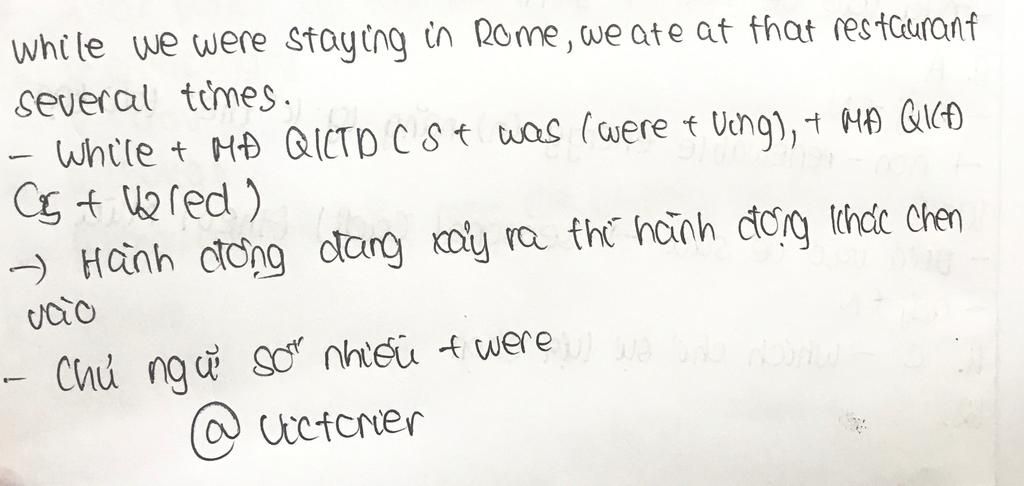 While we were staying in Rome, we ate at that restaurant
several times.
- While + MĐ QKTD ( S + was (were + Ving), + MĐ QKĐ
(S + V2(ed)
→ Hành động đang xảy ra thì hành động khác chen
vào
- Chủ ngữ số nhiều + were
@ Victorier